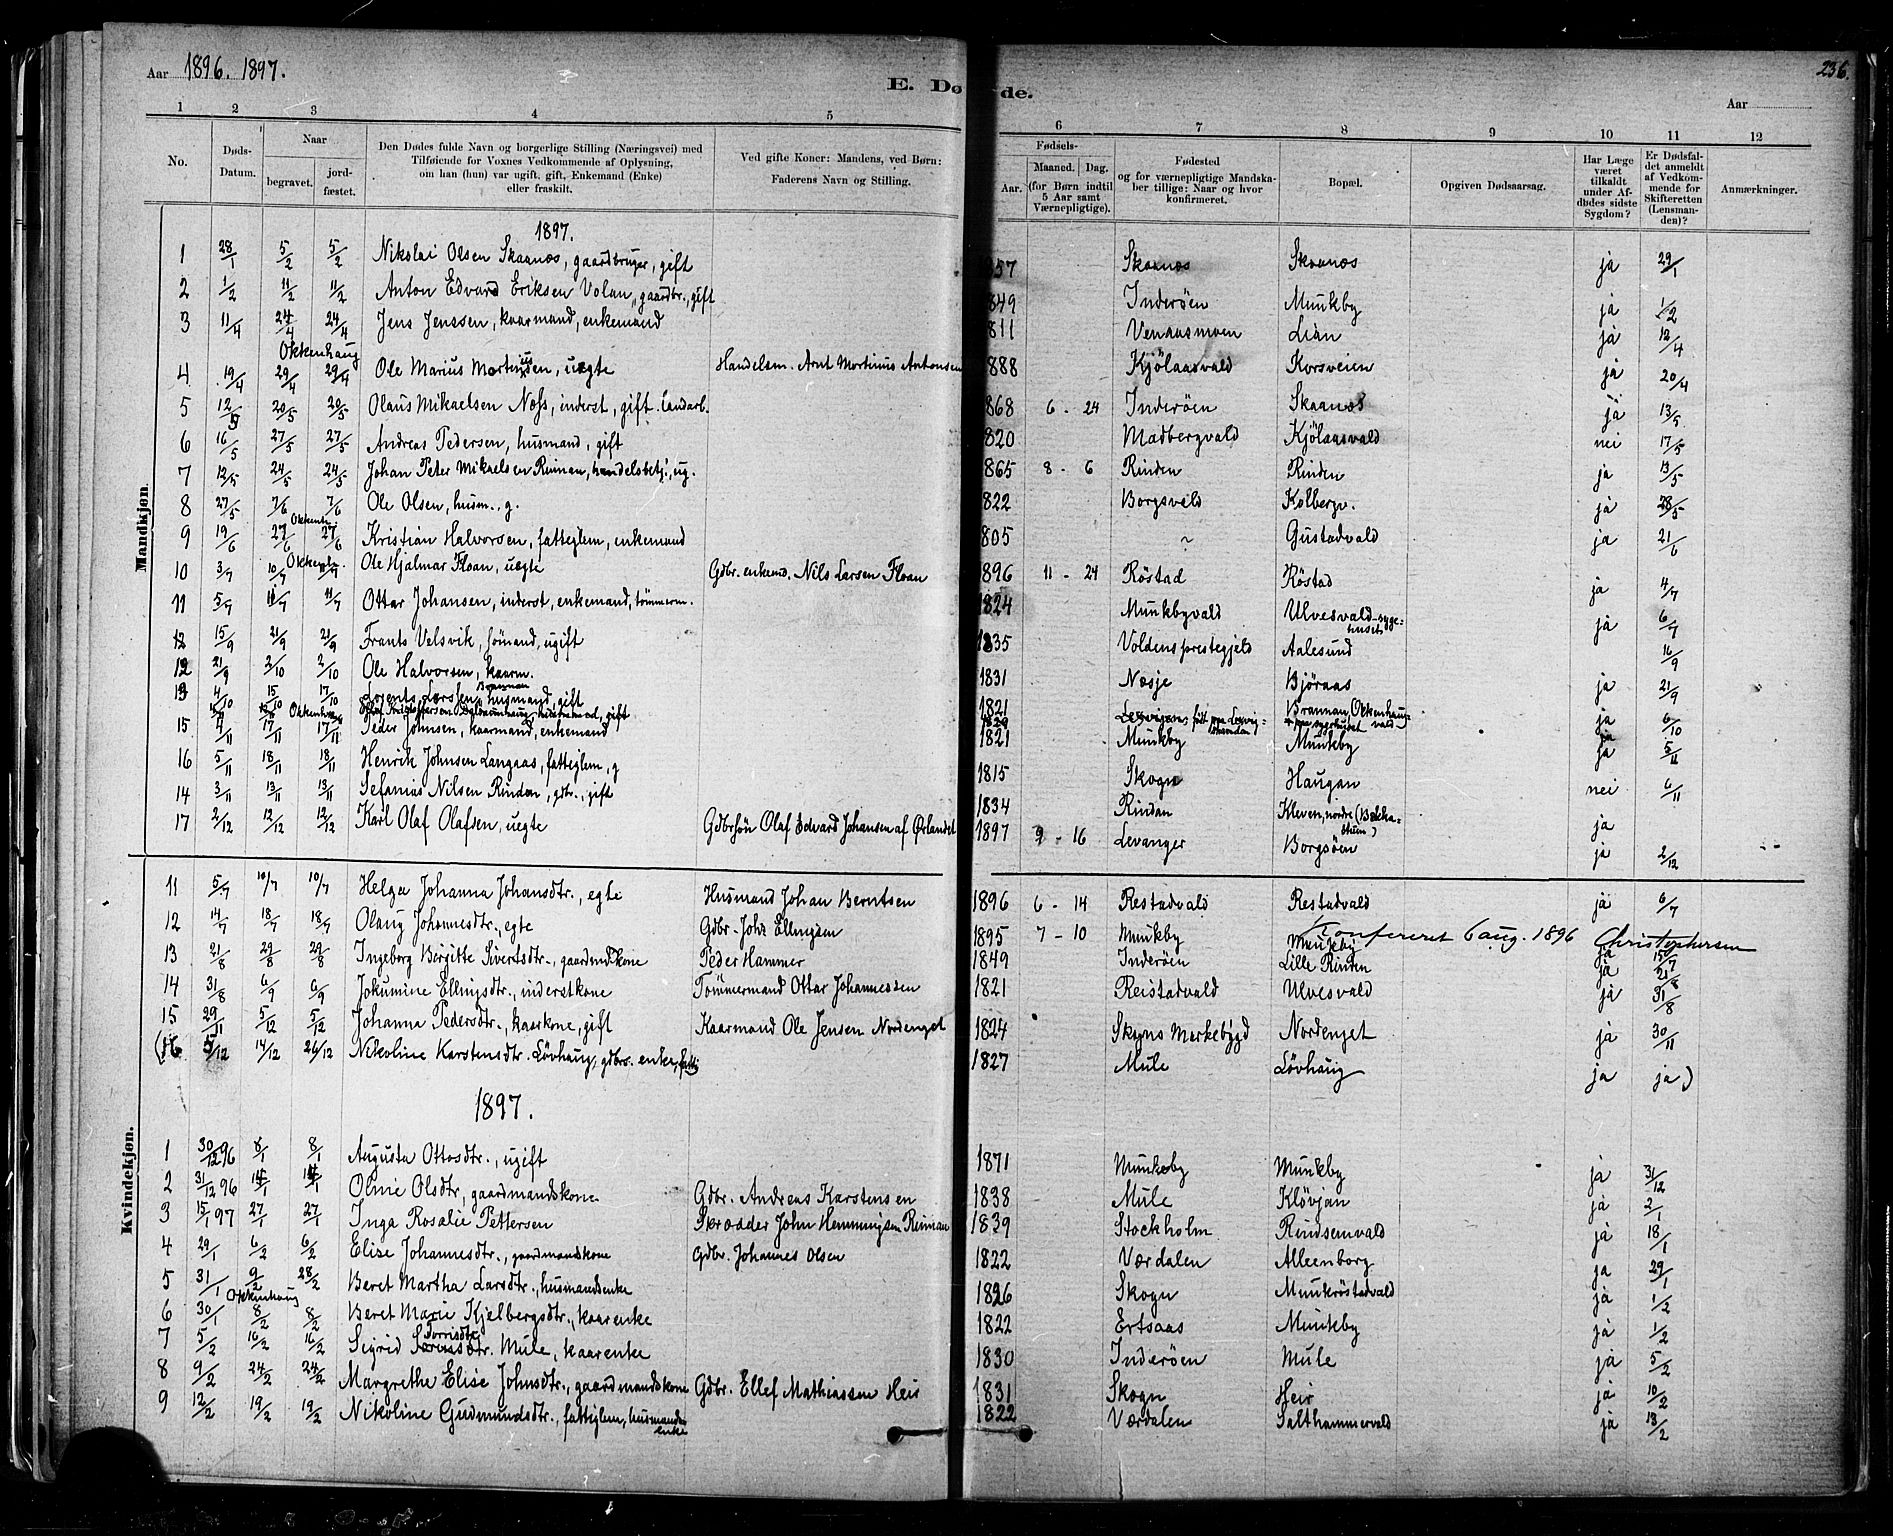 Aar 1896. 1897.
E. Dø de.
236.
Aar
1 2 3 4 5 6 7 8 9 10 11 12
No.
Døds-Datum.
Naar
begravet.
jord-fæstet.
Den Dødes fulde Navn og borgerlige Stilling (Næringsvei) med
Tilføiende for Voxnes Vedkommende af Oplysning,
om han (hun) var ugift, gift, Enkemand (Enke)
eller fraskilt.
Ved gifte Koner: Mandens, ved Børn:
Faderens Navn og Stilling.
Fødsels-
Aar.
Maaned. Dag.
(for Børn indtil
5 Aar samt
Værnepligtige).
Fødested
og for værnepligtige Mandska-
ber tillige: Naar og hvor
konfirmeret.
Bopæl.
Opgiven Dødsaarsag.
Har Læge
været
tilkaldt
under Af-
dødes sidste
Sygdom?
Er Dødsfal-
det anmeldt
af Vedkom-
mende for
Skifteretten
(Lensman-
den)?
Anmærkninger.
Mandkjøn.
1897.
1 28/1 5/2 5/2 Nikolai Olsen Skaanes, gaardbruger, gift 857 Skaanes Skaanes ja 29/1
2 1/2 11/2 11/2 Anton Edvard Eriksen Volan, gaardbr., gift 849 Inderöen Munkby ja 1/2
3 11/4 24/4 24/4 Jens Jenssen, kaarmand, enkemand 811 Venaasmoen Lian ja 12/4
Okkenhaug
4 19/4 29/4 29/4 Ole Marius Mortinusen, uegte Handelsm. Arnt Mortinus Antonsen 888 Kjölaasvald Korsveien ja 20/4
5 12/5 20/5 20/5 Olaus Mikaelsen Næss, inderst, gift. landarb. 868 6 - 24 Inderöen Skaanes ja 13/5
6 16/5 27/5 27/5 Andreas Pedersen, husmand, gift 820 Madbergvald Kjölaasvald nei 17/5
7 12/5 24/5 24/5 Johan Peter Mikaelsen Reinan, handelsbetj., ug. 865 8 - 6 Rinden Rinden ja 13/5
8 27/5 7/6 7/6 Ole Olsen, husm., g. 822 Borgsveld Kolbergv. ja 28/5
Okkenh.
9 19/6 27/6 27/6 Kristian Halvorsen, fatteglem, enkemand 805 ~ Gustadvald ja 21/6
Okkenh.
10 3/7 10/7 11/7 Ole Hjalmar Floan, uegte Gdbr. enkemd. Nils Larsen Floan 896 11 - 24 Röstad Röstad ja 4/7
11 5/7 11/7 11/7 Ottar Johansen, inderst, enkemand, tömmerm. 1824 Munkbyvald Ulvesvald-syge-
huset ja 6/7
12 15/9 21/9 21/9 Frants Velsvik, sömand, ugift 1835 Voldens prestegjeld Aalesund 16/9
12 21/9 2/10 2/10 Ole Halvorsen, kaarm. 1831 Næsje Björaas ja 21/9
13 4/10 15/10 17/10 Lorents Larssen Brannan husmand gift 1821 Brannan Okkenhaug-
vald ja 6/10
Okkenhaug
15 4/11 17/11 17/11 Peder Johnsen, kaarmand, enkemand 1821 Munkby Munkby ja 5/11
16 5/11 18/11 18/11 Henrik Johnsen Langaas, fatteglem, g 1815 Skogn Haugan nei 6/11
14 3/11 13/11 13/11 Sefanias Nilsen Rindan, gdbr., gift 1834 Rindan Kleven, nordre (Bakka-
thun) ja
17 2/12 12/12 12/12 Karl Olaf Olafsen, uegte Gdbrsön Olaf Edvard Johansen af Ørlandet 1897 9 - 16 Levanger Borgsöen ja 2/12
Kvindekjøn.
11 5/7 10/7 10/7 Helga Johanna Johansdtr., egte Husmand Johan Berntsen 1896 6 - 14 Restadvald Restadvald ja 6/7
12 14/7 18/7 18/7 Olaug Johannesdtr., egte Gdbr. Johs Ellingsen 1895 7 - 10 Munkby Munkby ja 15/7
Konfereret 6 aug. 1896 Christophersen
13 21/8 29/8 29/8 Ingeborg Birgitte Sivertsdtr., gaardmdskone Peder Hammer 1849 Inderöen Lille Rinden ja 21/8
14 31/8 6/9 6/9 Jokumine Ellingsdtr., inderstkone Tömmermand Ottar Johannessen 1821 Reistadvald Ulvesvald ja 31/8
15 29/11 5/12 5/12 Johanna Pedersdtr., kaarkone, gift Kaarmand Ole Jensen Nordenget 1824 Skogns Markebygd Nordenget ja 30/11
(16 5/12 14/12 26/12 Nikoline Karstensdtr. Lövhaug, gdbrs. enke, 1827 Mule Lövhaug ja ja)
1897.
1 30/12 96 8/1 8/1 Augusta Ottosdtr., ugift 1871 Munkeby Munkby ja 31/12
2 31/12 96 14/1 14/1 Oline Olsdtr, gaardmandskone Gdbr. Andreas Karstensen 1838 Mule Klövjan ja 2/1
3 15/1 97 27/1 27/1 Inga Rosalie Pettersen Skrædder John Hemmingsen Reinan 1839 Stockholm Rindsemvald ja 18/1
4 29/1 6/2 6/2 Elise Johannesdtr., gaardmandskone Gdbr. Johannes Olsen 1822 Værdalen Alleenborg ja 29/1
5 31/1 9/2 28/2 Beret Martha Larsdtr., husmandsenke 1826 Skogn Munkröstadvald ja 1/2
Okkenhaug
6 30/1 8/2 8/2 Beret Marie Kjelbergsdtr., kaarenke 1822 Ertsaas Munkby ja 1/2
7 5/2 16/2 16/2 Sigrid Torrisdtr. Mule, kaarenke 1830 Inderöen Mule ja 5/2
8 9/2 24/2 24/2 Margrethe Elise Johnsdtr., gaardmandskone Gdbr. Ellef Mathiassen Heir 1831 Skogn Heir ja 10/2
9 12/2 19/2 19/2 Nikoline Gudmundsdtr., fatteglem, husmands
enke 1822 Værdalen Salthammervald ja 13/2